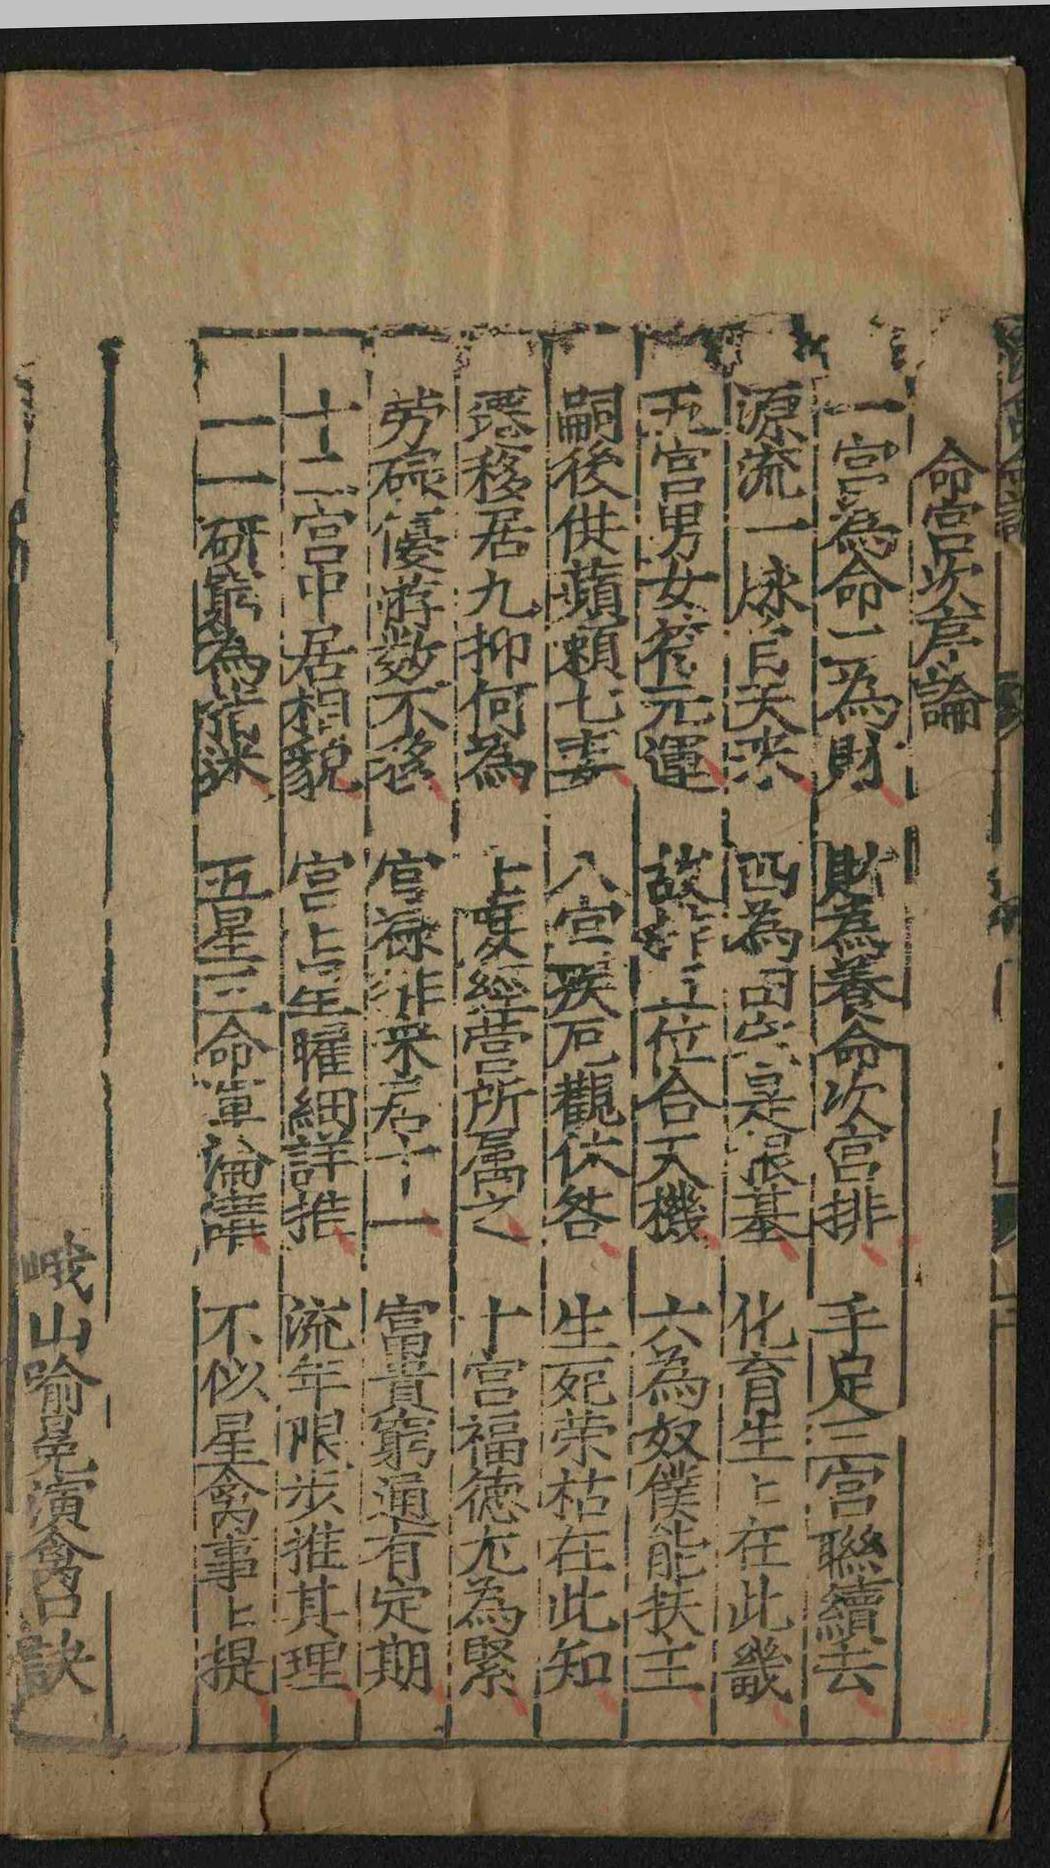 命宮次序論
一宮為命二為財 財為養命次宮排 手足三宮聯續去
源流一脉自天來 四為田宅是根基 化育生上在此畿
五宮男女乾元運 故許五位合天機 六為奴僕能扶主
嗣後供蘋賴七妻 八宮疾厄觀休咎 生死荣枯在此知
遷移居九抑何為 上度經營所屬之 十宮福德尤為緊
劳碌優游数不移 官祿排來居十一 富貴窮通有定期
十二宮中居相貌 宮上星曜細詳推 流年限步推其理
一一研窮為指迷 五星三命单論講 不似星禽事上提
峨山喻冕演禽口訣